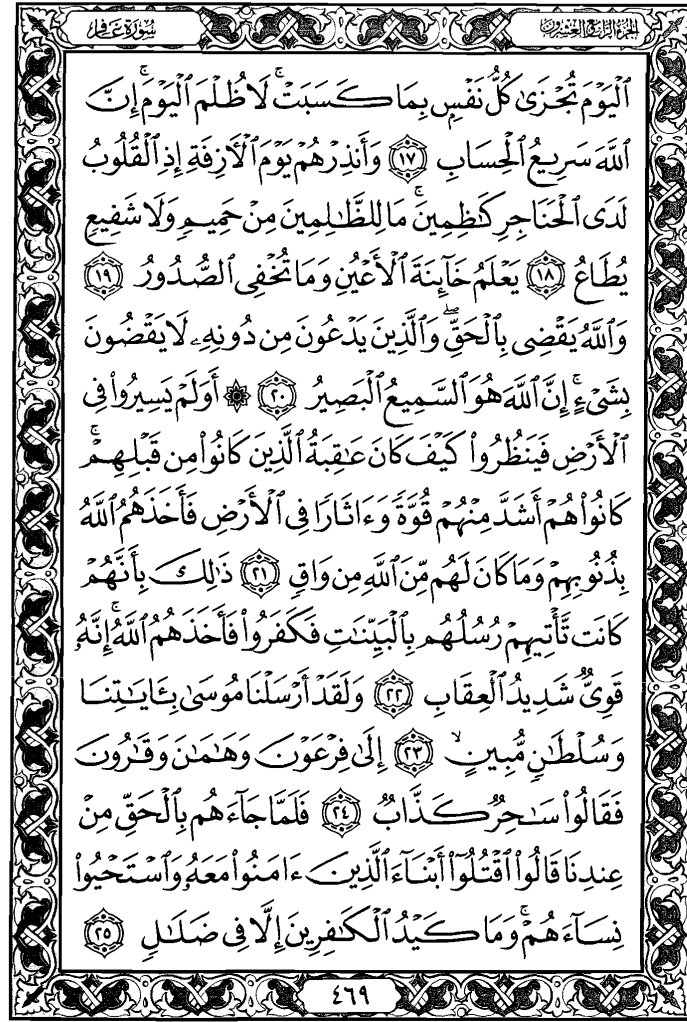 الجزء الرابع والعشرون
سورة غافر
ٱلۡيَوۡمَ تُجۡزَىٰ كُلُّ نَفۡسِۭ بِمَا كَسَبَتۡۚ لَا ظُلۡمَ ٱلۡيَوۡمَۚ إِنَّ
ٱللَّهَ سَرِيعُ ٱلۡحِسَابِ ١٧ وَأَنذِرۡهُمۡ يَوۡمَ ٱلۡأٓزِفَةِ إِذِ ٱلۡقُلُوبُ
لَدَى ٱلۡحَنَاجِرِ كَٰظِمِينَۚ مَا لِلظَّٰلِمِينَ مِنۡ حَمِيمٖ وَلَا شَفِيعٖ
يُطَاعُ ١٨ يَعۡلَمُ خَآئِنَةَ ٱلۡأَعۡيُنِ وَمَا تُخۡفِي ٱلصُّدُورُ ١٩
وَٱللَّهُ يَقۡضِي بِٱلۡحَقِّۖ وَٱلَّذِينَ يَدۡعُونَ مِن دُونِهِۦ لَا يَقۡضُونَ
بِشَيۡءٍۚ إِنَّ ٱللَّهَ هُوَ ٱلسَّمِيعُ ٱلۡبَصِيرُ ٢٠ ۞ أَوَلَمۡ يَسِيرُواْ فِي
ٱلۡأَرۡضِ فَيَنظُرُواْ كَيۡفَ كَانَ عَٰقِبَةُ ٱلَّذِينَ كَانُواْ مِن قَبۡلِهِمۡۚ
كَانُواْ هُمۡ أَشَدَّ مِنۡهُمۡ قُوَّةٗ وَءَاثَارٗا فِي ٱلۡأَرۡضِ فَأَخَذَهُمُ ٱللَّهُ
بِذُنُوبِهِمۡ وَمَا كَانَ لَهُم مِّنَ ٱللَّهِ مِن وَاقٖ ٢١ ذَٰلِكَ بِأَنَّهُمۡ
كَانَت تَّأۡتِيهِمۡ رُسُلُهُم بِٱلۡبَيِّنَٰتِ فَكَفَرُواْ فَأَخَذَهُمُ ٱللَّهُۚ إِنَّهُۥ
قَوِيّٞ شَدِيدُ ٱلۡعِقَابِ ٢٢ وَلَقَدۡ أَرۡسَلۡنَا مُوسَىٰ بِـَٔايَٰتِنَا
وَسُلۡطَٰنٖ مُّبِينٍ ٢٣ إِلَىٰ فِرۡعَوۡنَ وَهَٰمَٰنَ وَقَٰرُونَ
فَقَالُواْ سَٰحِرٞ كَذَّابٞ ٢٤ فَلَمَّا جَآءَهُم بِٱلۡحَقِّ مِنۡ
عِندِنَا قَالُواْ ٱقۡتُلُوٓاْ أَبۡنَآءَ ٱلَّذِينَ ءَامَنُواْ مَعَهُۥ وَٱسۡتَحۡيُواْ
نِسَآءَهُمۡۚ وَمَا كَيۡدُ ٱلۡكَٰفِرِينَ إِلَّا فِي ضَلَٰلٖ ٢٥
٤٦٩